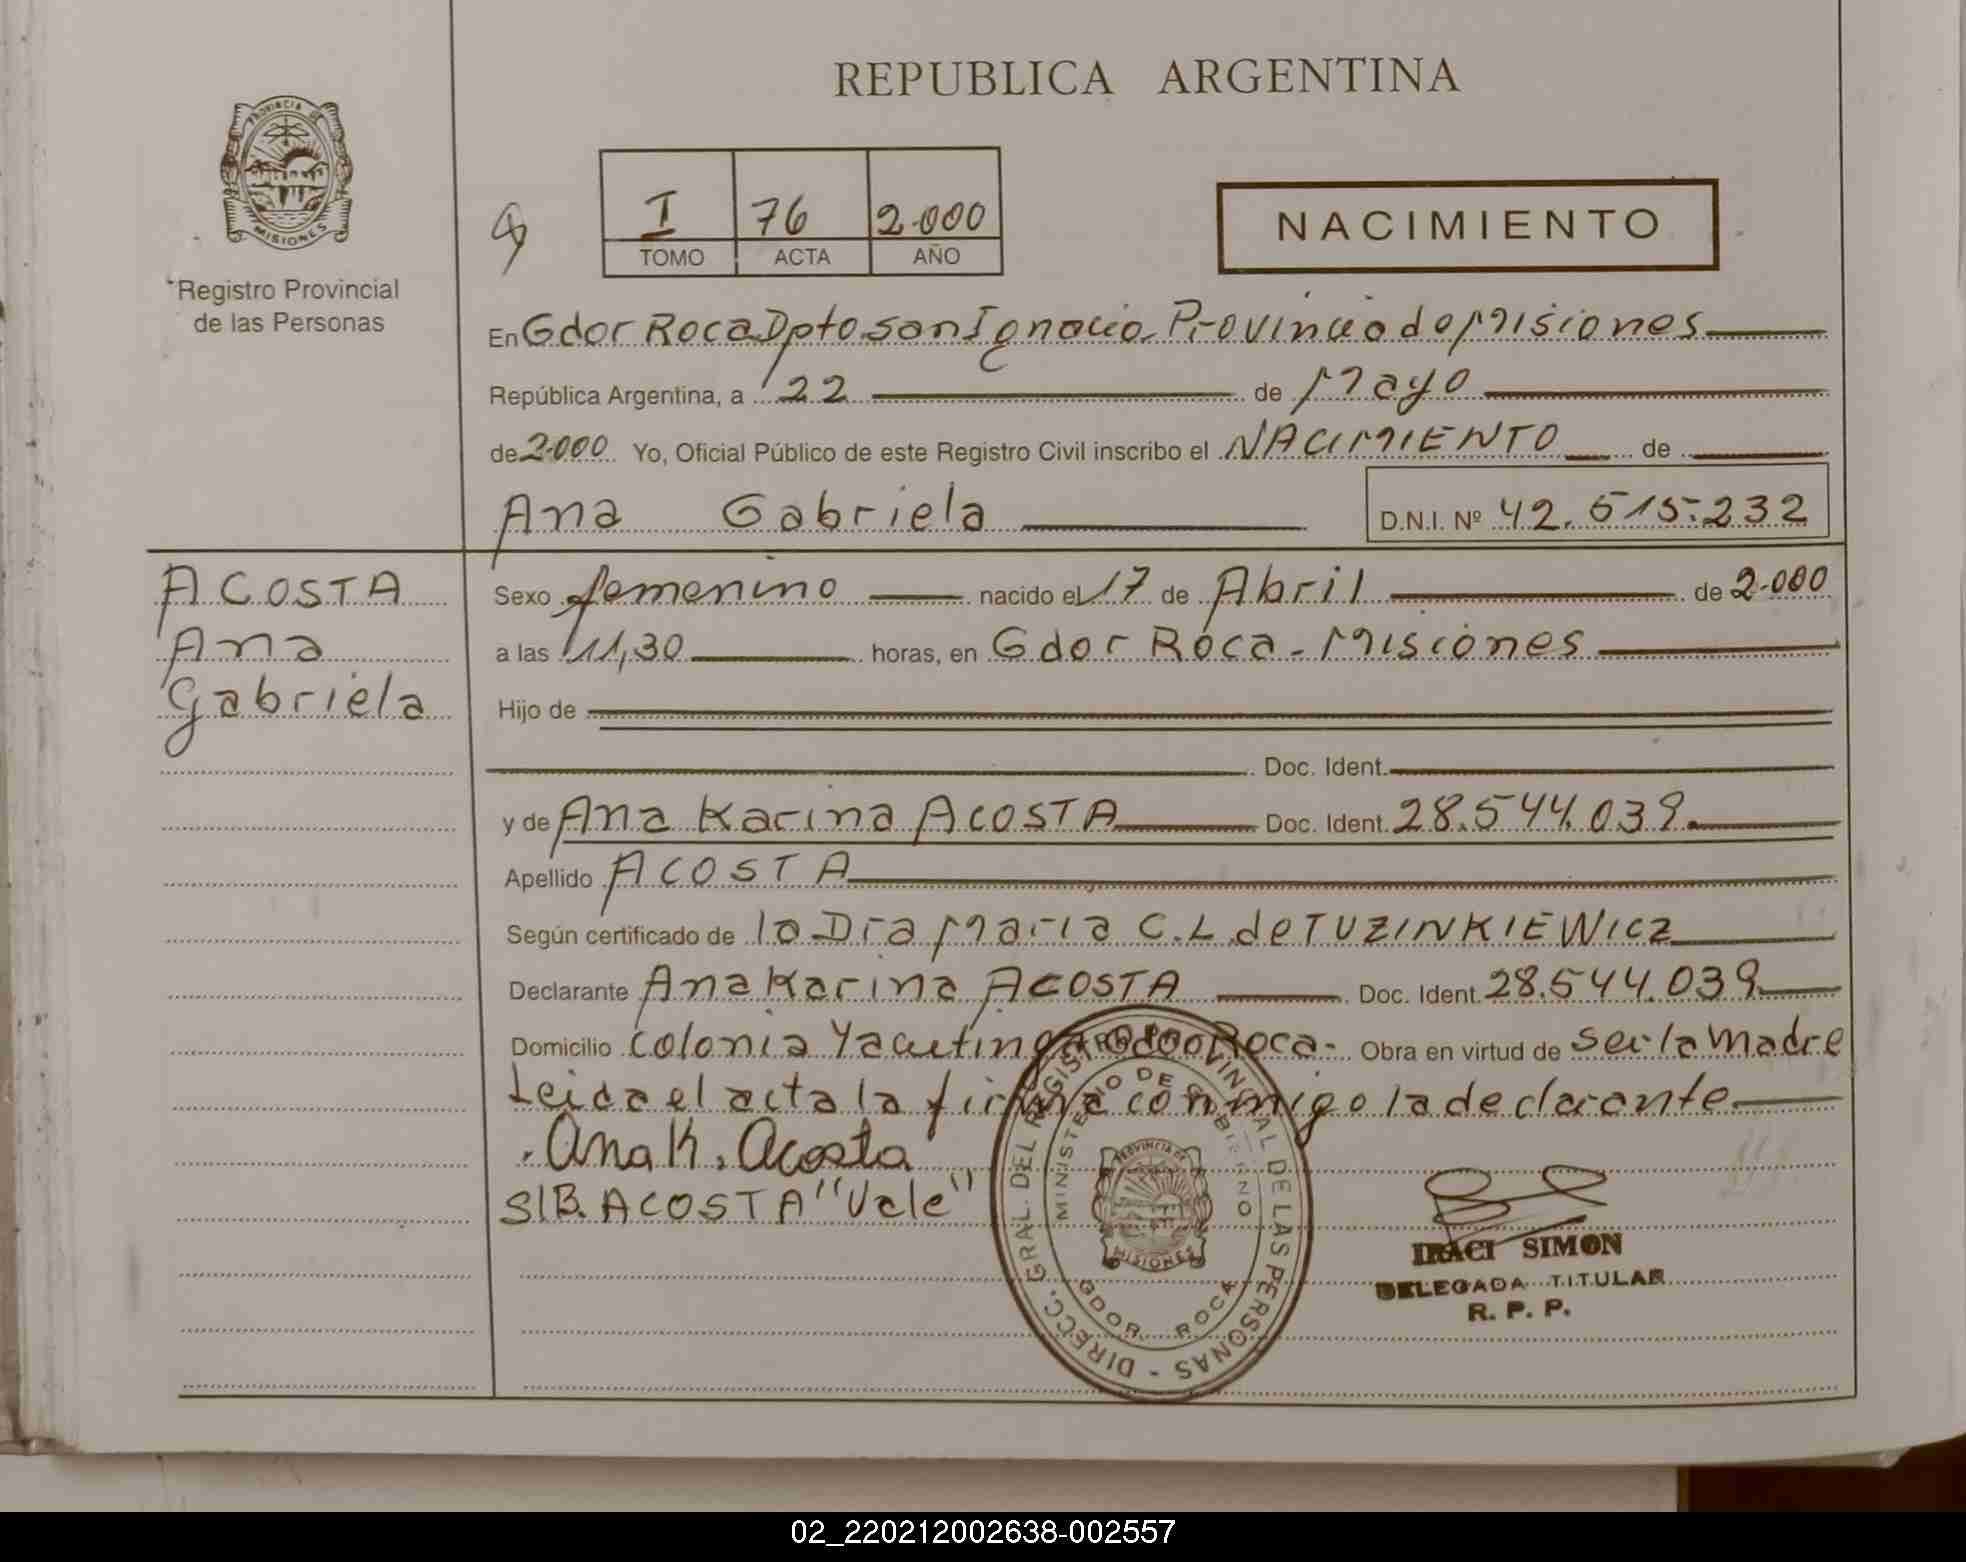 REPUBLICA ARGENTINA
PROVINCIA DE
MISIONES
Registro Provincial
de las Personas
I 76 2.000
TOMO ACTA AÑO
NACIMIENTO
En Gdor Roca Dpto san Ignacio Provincia de Misiones
República Argentina, a 22 de Mayo
de 2.000 Yo, Oficial Público de este Registro Civil inscribo el NACIMIENTO de
Ana Gabriela D.N.I. Nº 42.515.232
ACOSTA
Ana
Gabriela
Sexo femenino nacido el 17 de Abril de 2.000
a las 11,30 horas, en Gdor Roca - Misiones
Hijo de
Doc. Ident.
y de Ana Karina ACOSTA Doc. Ident. 28.544.039.
Apellido ACOSTA
Según certificado de la Dra Maria C.L. de TUZINKIEWICZ
Declarante Ana Karina ACOSTA Doc. Ident. 28.544.039
Domicilio Colonia Yacutinga Gdor Roca- Obra en virtud de ser la madre
Leida el acta la firma conmigo la declarante
Ana K. Acosta
S/B. ACOSTA "Vale"
DIRECC. GRAL. DEL REGISTRO PROVINCIAL DE LAS PERSONAS -
MINISTERIO DE GOBIERNO
PROVINCIA DE
MISIONES
GDOR. ROCA
IRACI SIMON
DELEGADA TITULAR
R. P. P.
02_220212002638-002557